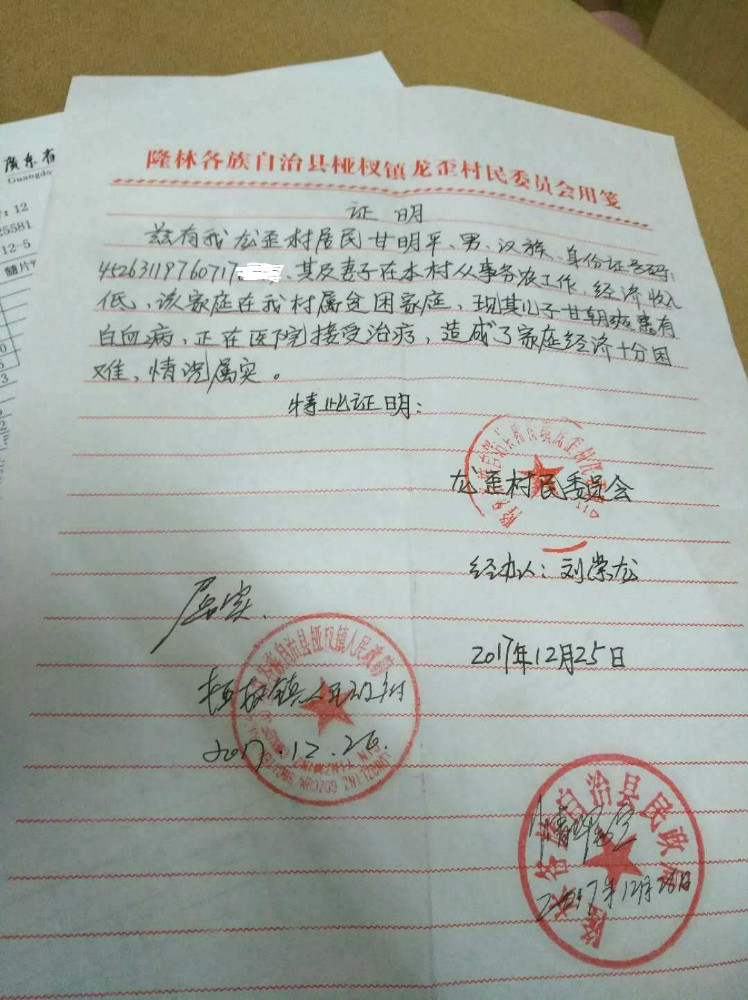 隆林各族自治县桠杈镇龙歪村民委员会用笺
证明
兹有我龙歪村居民甘明平、男、汉族、身份证号码:
45263119760717 、其及妻子在本村从事务农工作,经济收入
低、该家庭在我村属贫困家庭,现其儿子甘朝 患有
白血病,正在医院接受治疗,造成了家庭经济十分困
难,情况属实。
特此证明:
龙歪村民委员会
经办人:刘崇龙
2017年12月25日
属实.
桠杈镇人民政府
2017.12.26.
自治县桠杈镇人民政府
情况属实
2017年12月26日
隆林各族自治县民政局
廣东省
Guangdo
: 12
25581
12-5